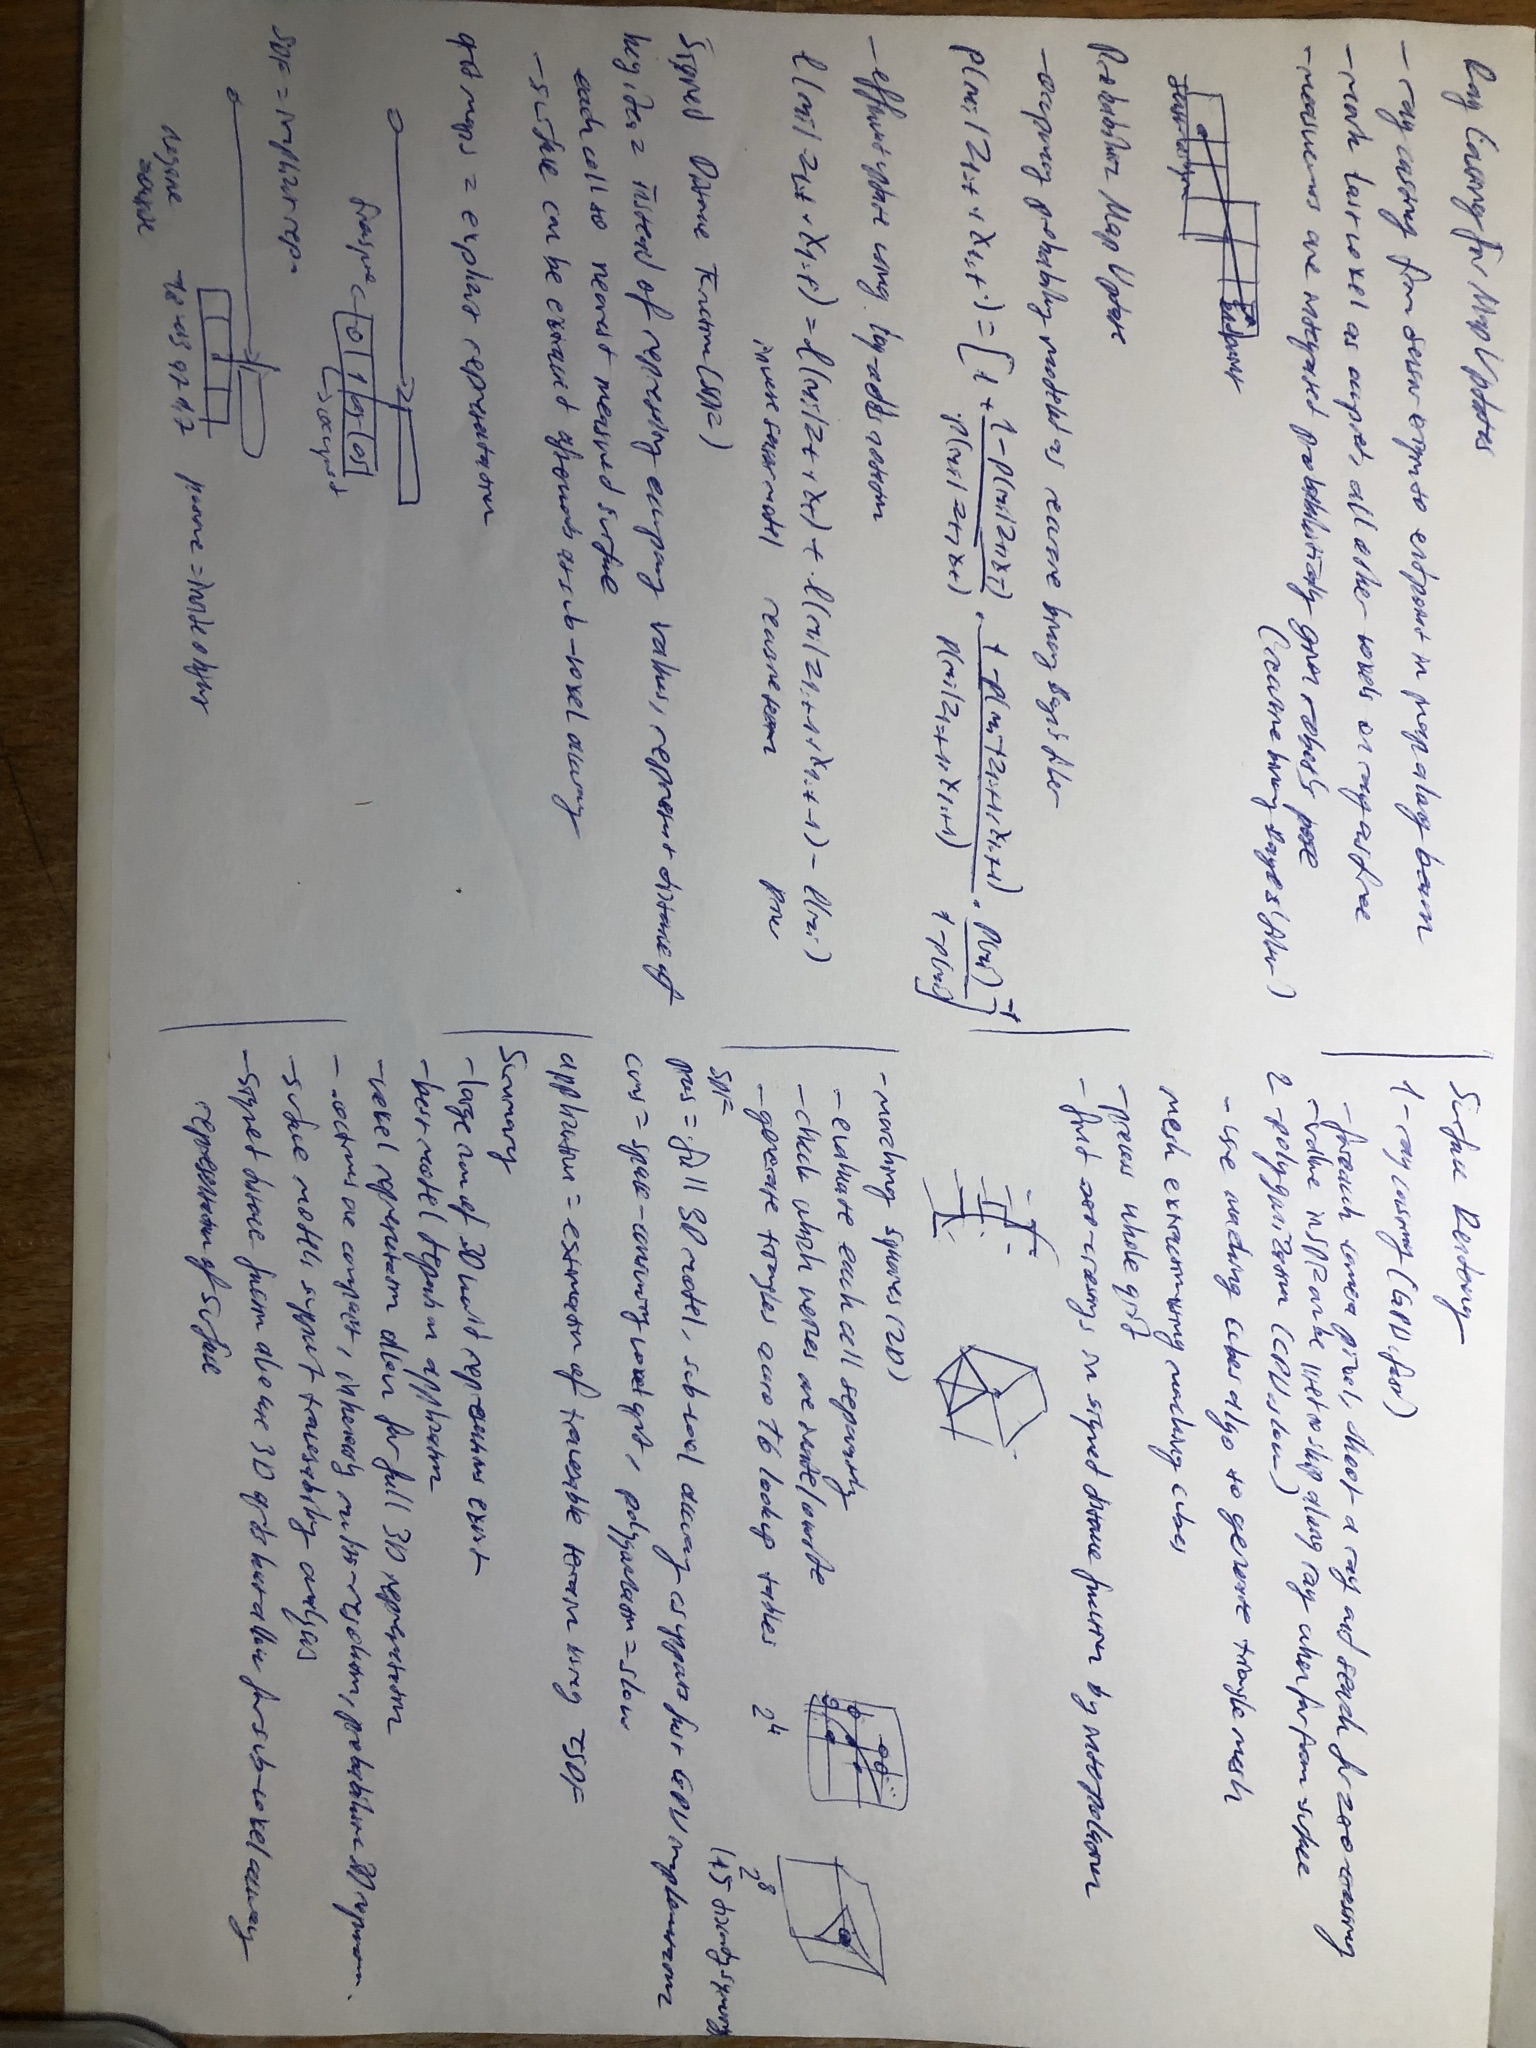 Ray Casting for Map Updates
- ray casting from sensor origin to endpoint in map along beam
- mark last voxel as occupied, all other voxels on ray as free
- measurements are integrated probabilistically given robot's pose
(recursive binary Bayes' filter)
endpoint
sensor origin
Probabilistic Map Update
- occupancy probability modeled as recursive binary Bayes' filter
P(mi | z1:t, x1:t) = [1 + 1 - P(mi | zt, xt) / P(mi | zt, xt) · 1 - P(mi | z1:t-1, x1:t-1) / P(mi | z1:t-1, x1:t-1) · P(mi) / 1 - P(mi)]⁻¹
- efficient update using log-odds notation
l(mi | z1:t, x1:t) = l(mi | zt, xt) + l(mi | z1:t-1, x1:t-1) - l(mi)
inverse sensor model recursive term prior
Signed Distance Function (SDF)
key idea = instead of representing occupancy values, represent distance of
each cell to nearest measured surface
- surface can be extracted afterwards at sub-voxel accuracy
grid maps = explicit representation
free space
0 1 0.5 0.5
occupied
SDF = implicit repr.
negative = outside
positive = inside object
Surface Rendering
1 - ray casting (GPU, fast)
- for each camera pixel, shoot a ray and search for zero crossing
2 - polygonization (CPU, slow)
- use marching cubes algo to generate triangle mesh
mesh extraction using marching cubes
- process whole grid
- find zero-crossing in signed distance function by interpolation
- marching squares (2D)
- evaluate each cell separately
- check which vertices are inside/outside
- generate triangles acc to lookup tables
2⁴
2⁸
SDF
pros = full 3D model, sub-voxel accuracy, supports fast GPU implementations
cons = space-consuming voxel grid, polygonization = slow
application = estimation of traversable terrain using TSDF
Summary
- large num of 3D world representations exist
- best model depends on application
- voxel representations allow for full 3D representation
- octrees are compact, inherently multi-resolution, probabilistic 3D represen.
- surface models support traversability analysis
- signed distance function also use 3D grids but allow for sub-voxel accuracy
representation of surface